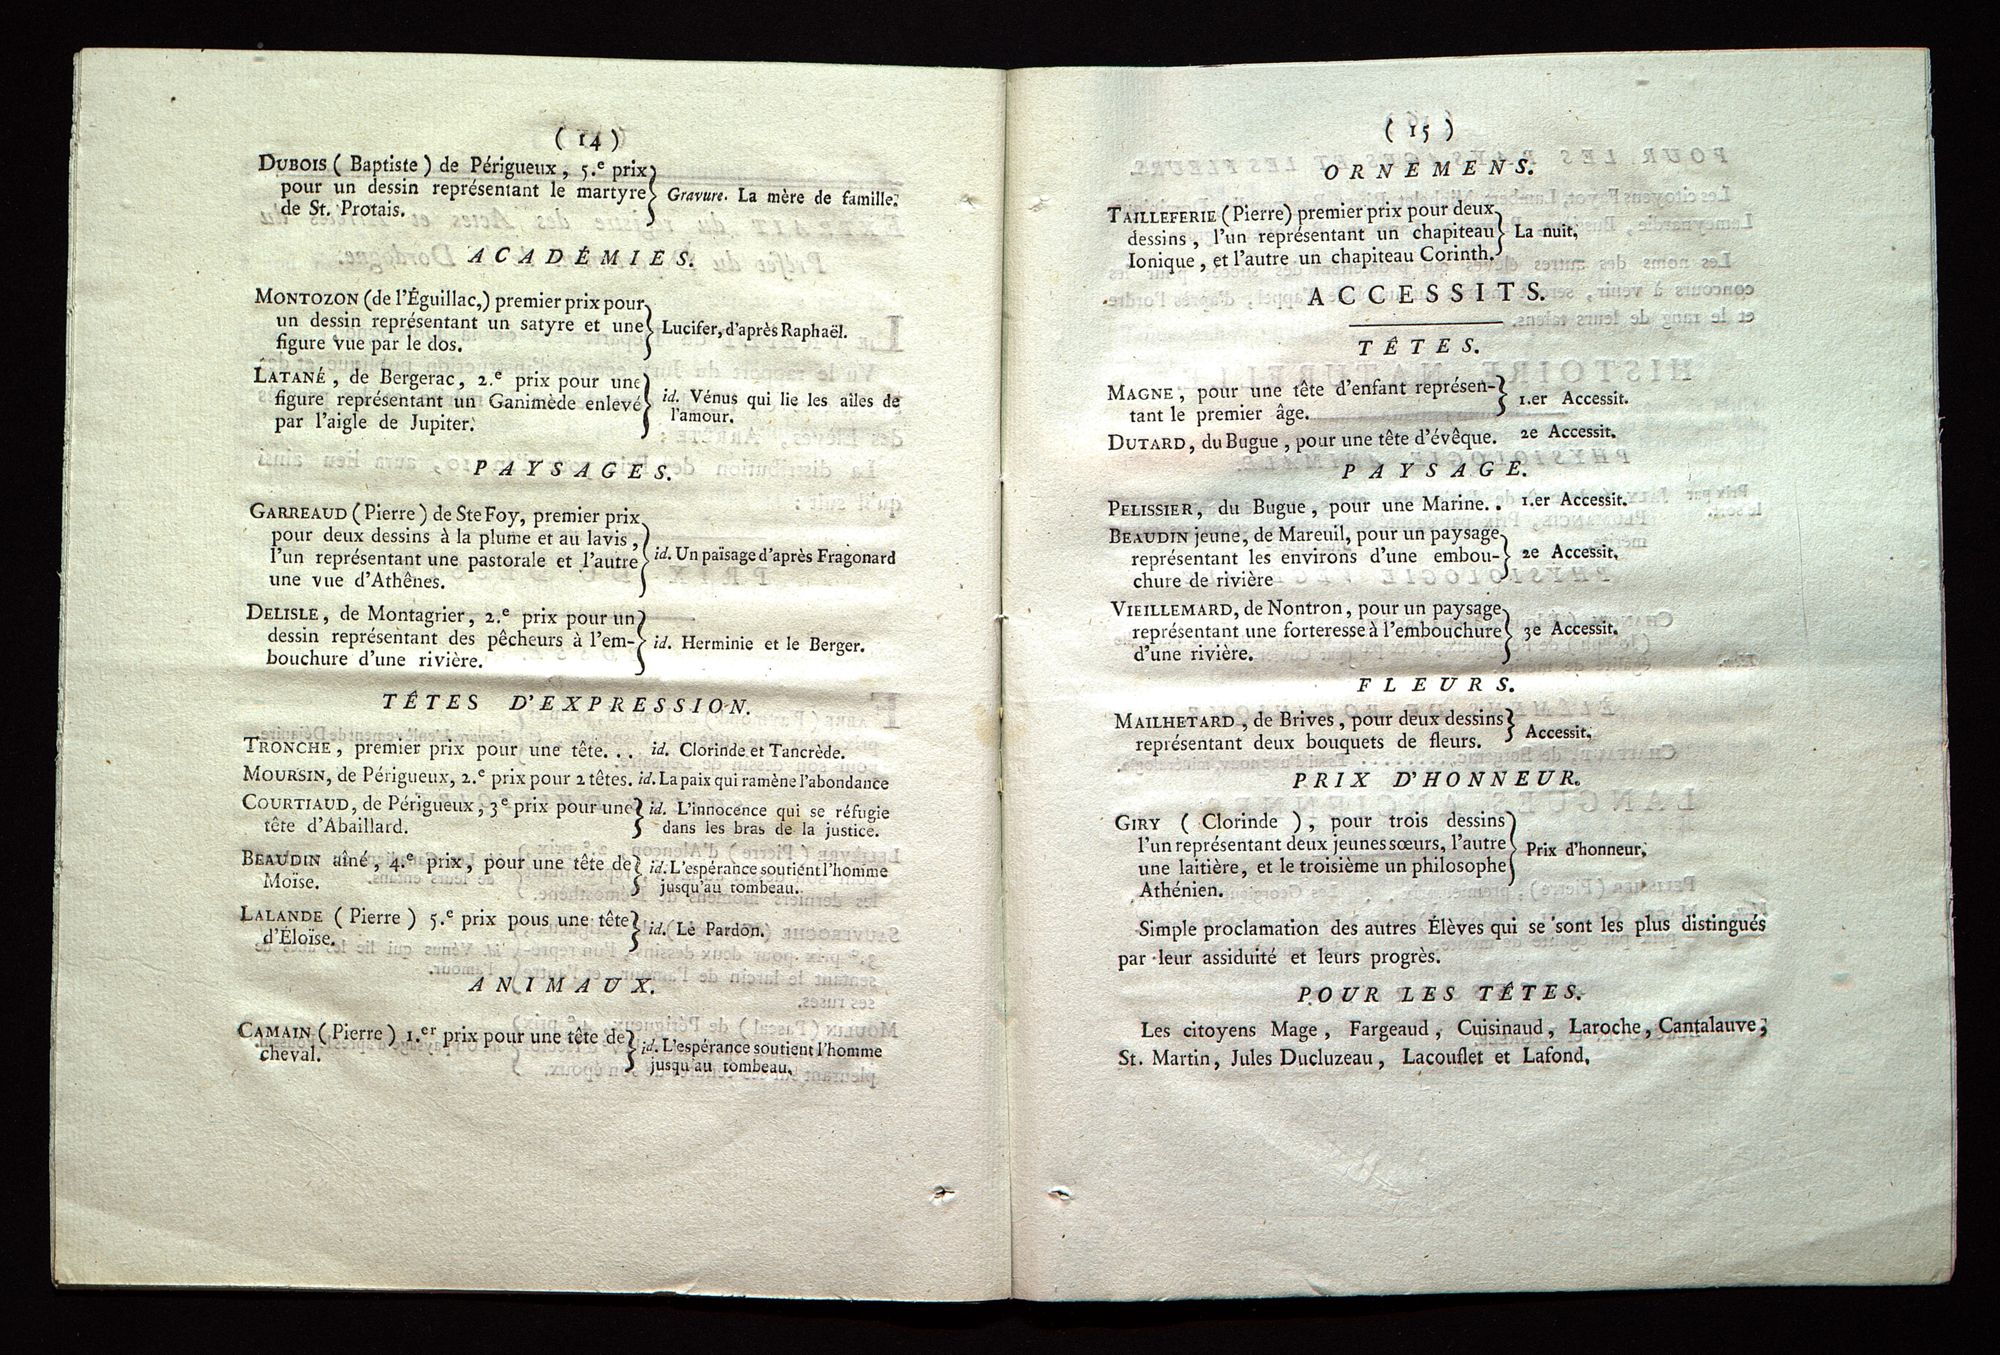 ( 14 )
DUBOIS ( Baptiste ) de Périgueux, 5.e prix
pour un dessin représentant le martyre
de St. Protais.
Gravure. La mère de famille.
ACADÉMIES.
MONTOZON (de l'Éguillac,) premier prix pour
un dessin représentant un satyre et une
figure vue par le dos.
Lucifer, d'après Raphaël.
LATANÉ, de Bergerac, 2.e prix pour une
figure représentant un Ganimède enlevé
par l'aigle de Jupiter.
id. Vénus qui lie les ailes de
l'amour.
PAYSAGES.
GARREAUD (Pierre) de Ste Foy, premier prix
pour deux dessins à la plume et au lavis,
l'un représentant une pastorale et l'autre
une vue d'Athênes.
id. Un païsage d'après Fragonard
DELISLE, de Montagrier, 2.e prix pour un
dessin représentant des pêcheurs à l'em-
bouchure d'une rivière.
id. Herminie et le Berger.
TÊTES D'EXPRESSION.
TRONCHE, premier prix pour une tête... id. Clorinde et Tancrède.
MOURSIN, de Périgueux, 2.e prix pour 2 têtes. id. La paix qui ramène l'abondance
COURTIAUD, de Périgueux, 3e prix pour une
tête d'Abaillard.
id. L'innocence qui se réfugie
dans les bras de la justice.
BEAUDIN aîné, 4.e prix, pour une tête de
Moïse.
id. L'espérance soutient l'homme
jusqu'au tombeau.
LALANDE ( Pierre ) 5.e prix pous une tête
d'Éloïse.
id. Le Pardon.
ANIMAUX.
CAMAIN (Pierre) 1.er prix pour une tête de
cheval.
id. L'espérance soutient l'homme
jusqu'au tombeau.
( 15 )
ORNEMENS.
TAILLEFERIE (Pierre) premier prix pour deux
dessins, l'un représentant un chapiteau
Ionique, et l'autre un chapiteau Corinth.
La nuit,
ACCESSITS.
TÊTES.
MAGNE, pour une tête d'enfant représen-
tant le premier âge.
1.er Accessit.
DUTARD, du Bugue, pour une tête d'évêque. 2e Accessit.
PAYSAGE.
PELISSIER, du Bugue, pour une Marine.. 1.er Accessit.
BEAUDIN jeune, de Mareuil, pour un paysage
représentant les environs d'une embou-
chure de rivière
2e Accessit.
VIEILLEMARD, de Nontron, pour un paysage
représentant une forteresse à l'embouchure
d'une rivière.
3e Accessit.
FLEURS.
MAILHETARD, de Brives, pour deux dessins
représentant deux bouquets de fleurs.
Accessit.
PRIX D'HONNEUR.
GIRY ( Clorinde ), pour trois dessins
l'un représentant deux jeunes sœurs, l'autre
une laitière, et le troisième un philosophe
Athénien.
Prix d'honneur.
Simple proclamation des autres Élèves qui se sont les plus distingués
par leur assiduité et leurs progrès.
POUR LES TÊTES.
Les citoyens Mage, Fargeaud, Cuisinaud, Laroche, Cantalauve,
St. Martin, Jules Ducluzeau, Lacouflet et Lafond.